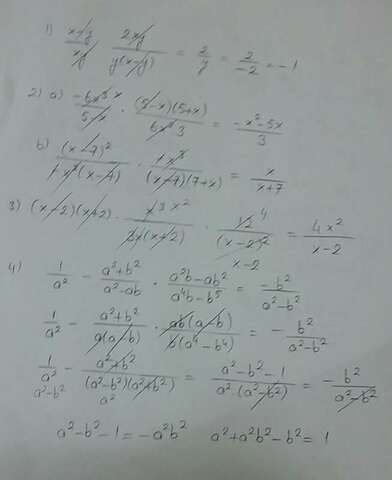 1) (x-y)/(xy) · (2xy)/(y(x-y)) = 2/y = 2/-2 = -1
2) a) (-6x³ x)/(5-x) · ((5-x)(5+x))/(6x² 3) = (-x²-5x)/3
b) (x-7)²/(1x²(x-7)) · (1x³)/((x-7)(7+x)) = x/(x+7)
3) (x-2)(x+2) · (x³ x²)/(3x(x+2)) · (12 4)/((x-2)² x-2) = 4x²/(x-2)
4) 1/a² - (a²+b²)/(a²-ab) · (a²b-ab²)/(a⁴b-b⁵) = -b²/(a²-b²)
1/a² - (a²+b²)/(a(a-b)) · (ab(a-b))/(b(a⁴-b⁴)) = - b²/(a²-b²)
1/a² a²-b² - (a²+b²)/((a²-b²)(a²+b²)) a² = (a²-b²-1)/(a²·(a²-b²)) = - b²/(a²-b²)
a²-b²-1 = -a²b² a²+a²b²-b² = 1